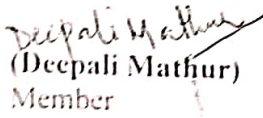 Deepali Mathur
(Deepali Mathur)
Member